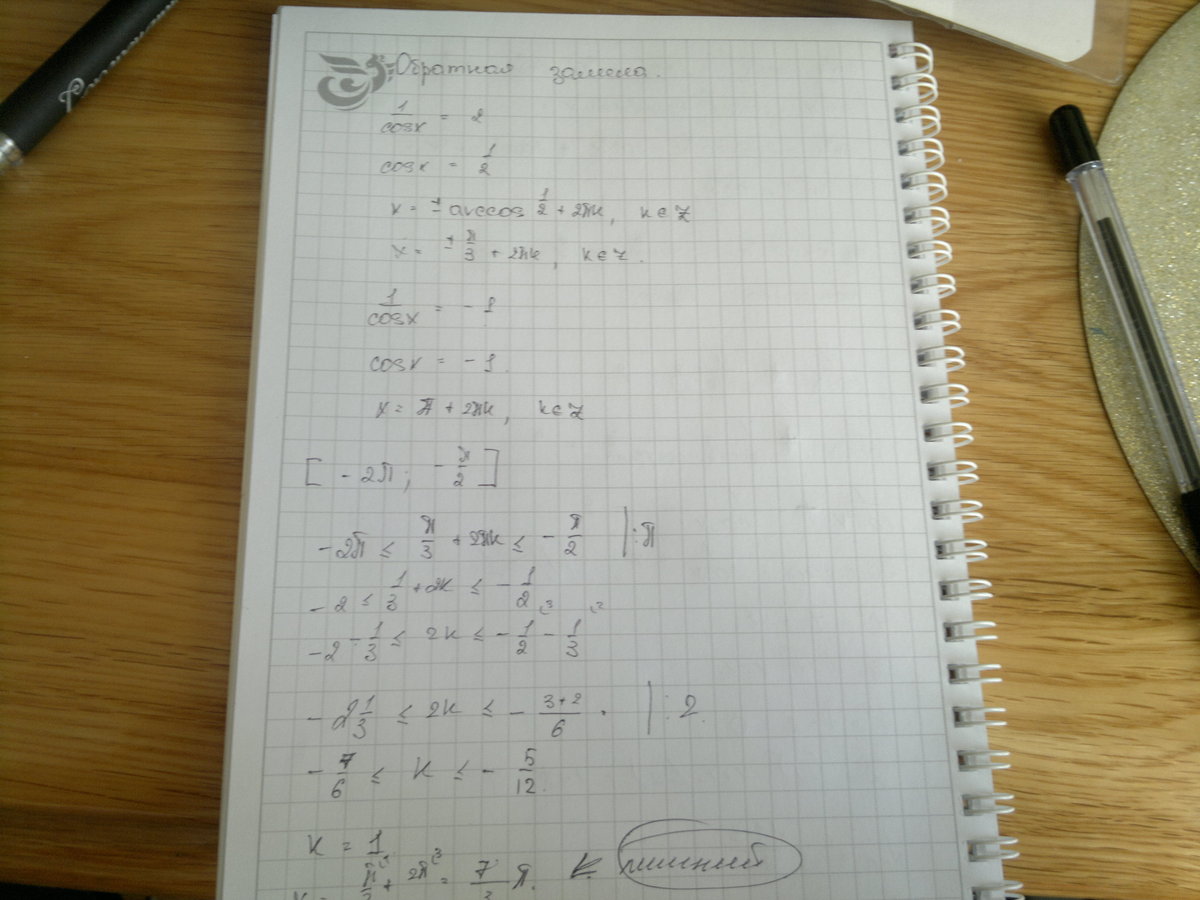 Обратная замена.
1/cosx = 2
cosx = 1/2
x = ± arccos 1/2 + 2πk, k∈Z
x = ± π/3 + 2πk, k∈Z.
1/cosx = -1
cosx = -1
x = π + 2πk, k∈Z
[ -2π; -π/2 ]
-2π ≤ π/3 + 2πk ≤ -π/2 | :π
-2 ≤ 1/3 + 2k ≤ -1/2
-2 - 1/3 ≤ 2k ≤ -1/2 - 1/3
-2 1/3 ≤ 2k ≤ - 3+2/6 . | : 2.
-7/6 ≤ k ≤ - 5/12.
k = 1
x = π/3 + 2π = 7/3 π. лишний